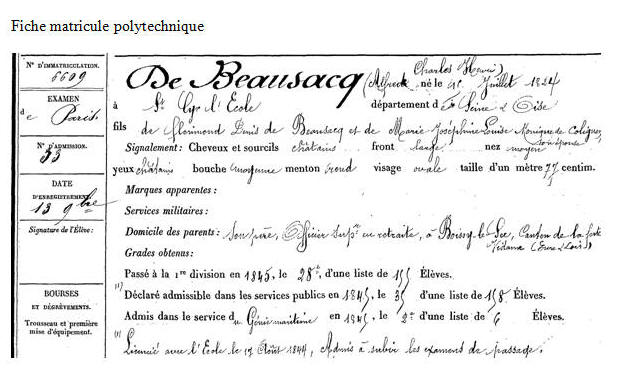 Fiche matricule polytechnique
N° D'IMMATRICULATION.
6609
EXAMEN
de Paris
N° D'ADMISSION.
33
DATE
D'ENREGISTREMENT.
13 9bre
Signature de l'Élève :
BOURSES
ET DÉGRÈVEMENTS.
Trousseau et première
mise d'équipement.
De Beausacq (Alfred Charles Henri) né le Juillet 1824
à St Cyr l'Ecole département de Seine & Oise
fils de Florimond Denis de Beausacq et de Marie Joséphine Louise Monique de Coligny, son épouse
Signalement : Cheveux et sourcils châtains front large nez moyen
yeux châtains bouche moyenne menton rond visage ovale taille d'un mètre 77 centim.
Marques apparentes :
Services militaires :
Domicile des parents : Son père, Officier Supr en retraite, à Boissy-le-Sec, Canton de la ferté
Vidame (Eure & Loir)
Grades obtenus :
Passé à la 1re division en 1845, le 28e, d'une liste de Élèves.
(1) Déclaré admissible dans les services publics en 1845, le d'une liste de Élèves.
Admis dans le service du Génie maritime en 1845, le 2e d'une liste de 6 Élèves.
(1) Licencié avec l'Ecole le Août 1844, Admis à subir les examens de passage.